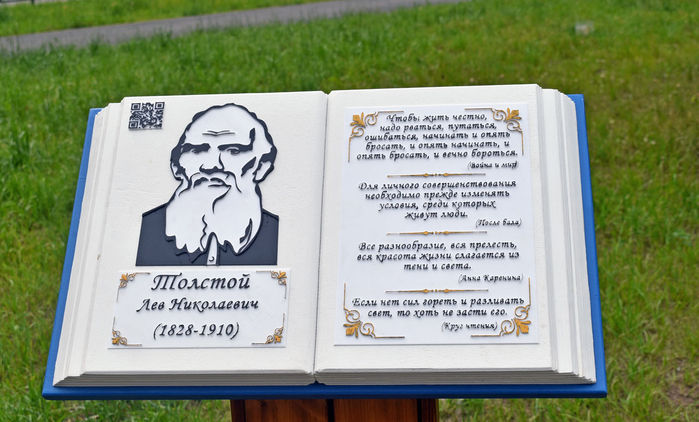 Толстой
Лев Николаевич
(1828-1910)
Чтобы жить честно,
надо рваться, путаться,
ошибаться, начинать и опять
бросать, и опять начинать, и
опять бросать, и вечно бороться.
(Война и мир)
Для личного совершенствования
необходимо прежде изменять
условия, среди которых
живут люди.
(После бала)
Все разнообразие, вся прелесть,
вся красота жизни слагается из
тени и света.
(Анна Каренина)
Если нет сил гореть и разливать
свет, то хоть не засти его.
(Круг чтения)